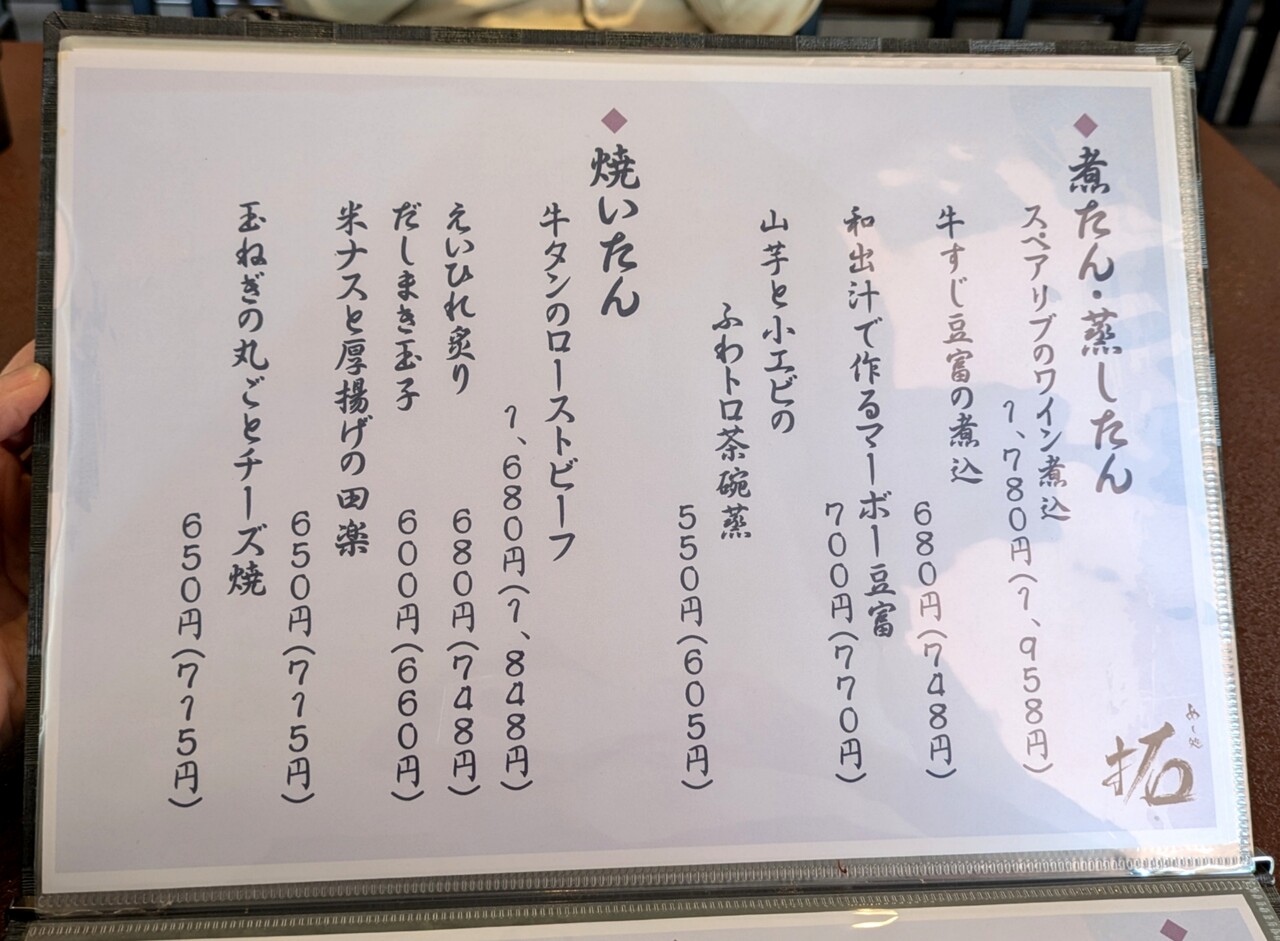 ◆煮たん・蒸したん
スペアリブのワイン煮込
1、780円(1、958円)
牛すじ豆富の煮込
680円(748円)
和出汁で作るマーボー豆富
700円(770円)
山芋と小エビの
ふわトロ茶碗蒸
550円(605円)
◆焼いたん
牛タンのローストビーフ
1、680円(1、848円)
えいひれ炙り
680円(748円)
だしまき玉子
600円(660円)
米ナスと厚揚げの田楽
650円(715円)
玉ねぎの丸ごとチーズ焼
650円(715円)
拓